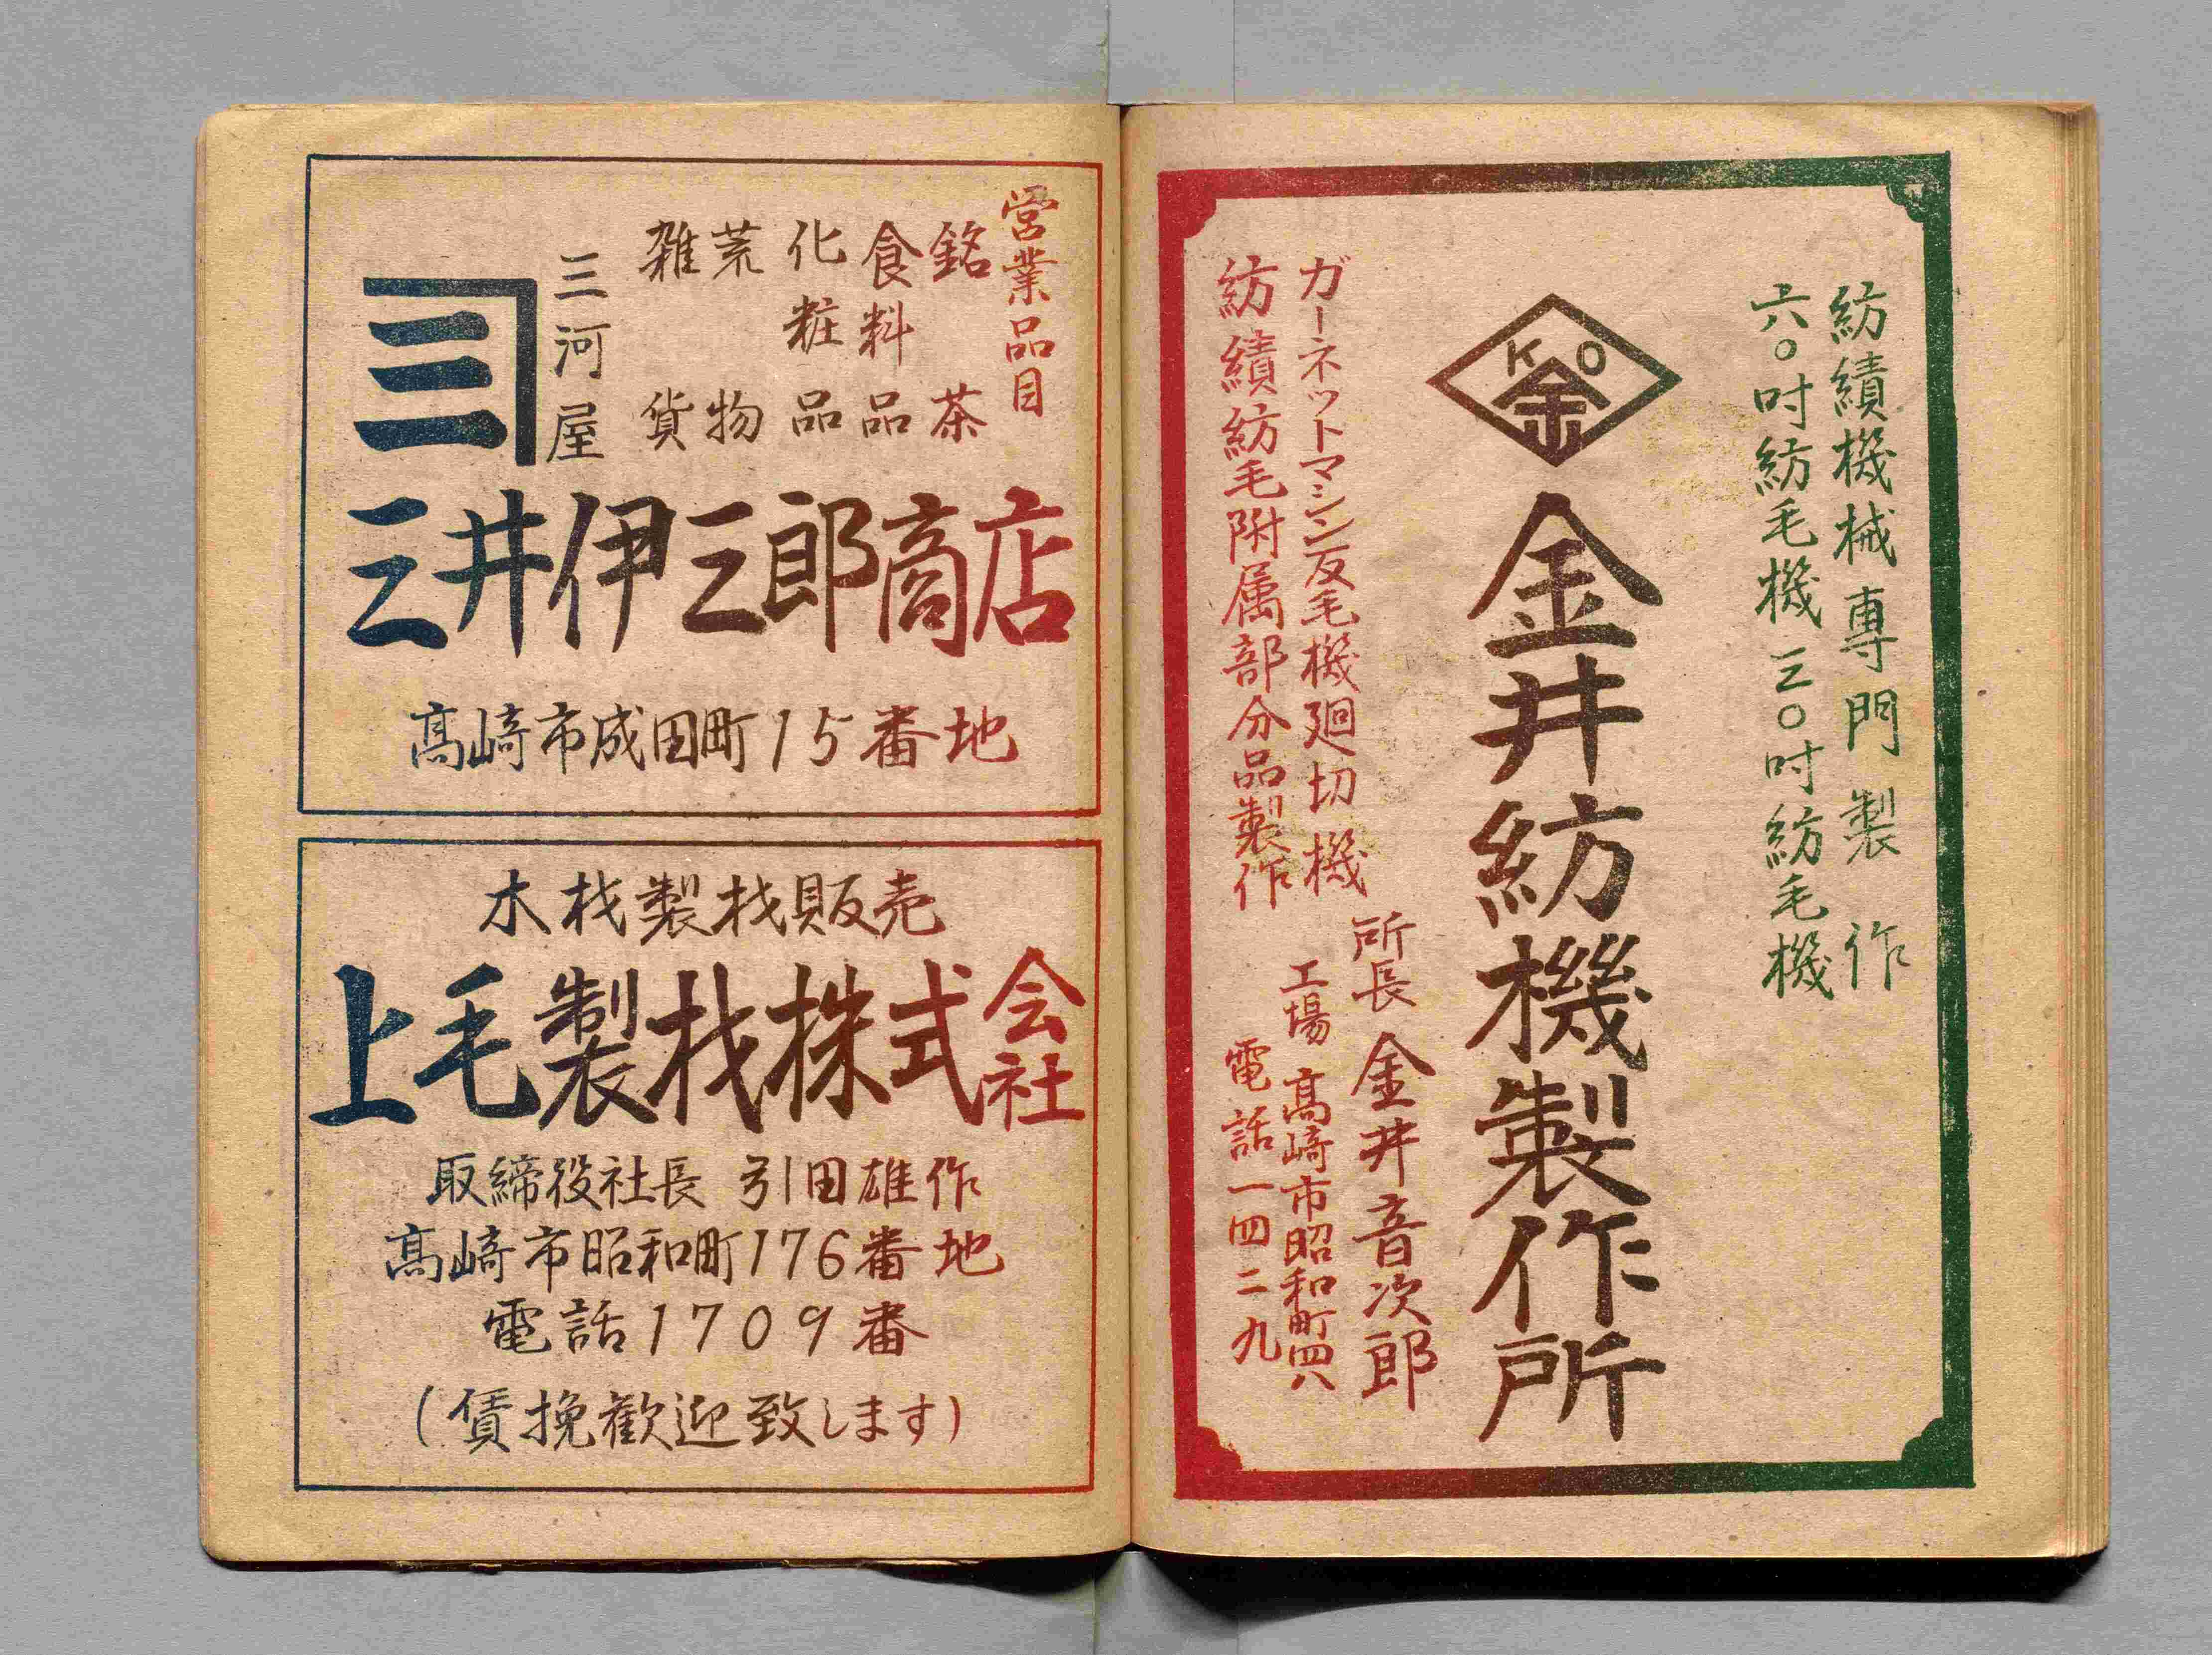 紡績機械專門製作
六〇吋紡毛機 三〇吋紡毛機
KO
金
金井紡機製作所
所長 金井音次郎
ガーネットマシン反毛機廻切機
工場 髙崎市昭和町四八
紡績紡毛附属部分品製作
電話一四二九
営業品目
銘茶
食料品
化粧品
荒物
雑貨
三河屋
三
三井伊三郎商店
髙崎市成田町15番地
木材製材販売
上毛製材株式会社
取締役社長 引田雄作
髙崎市昭和町176番地
電話1709番
(賃挽歓迎致します)